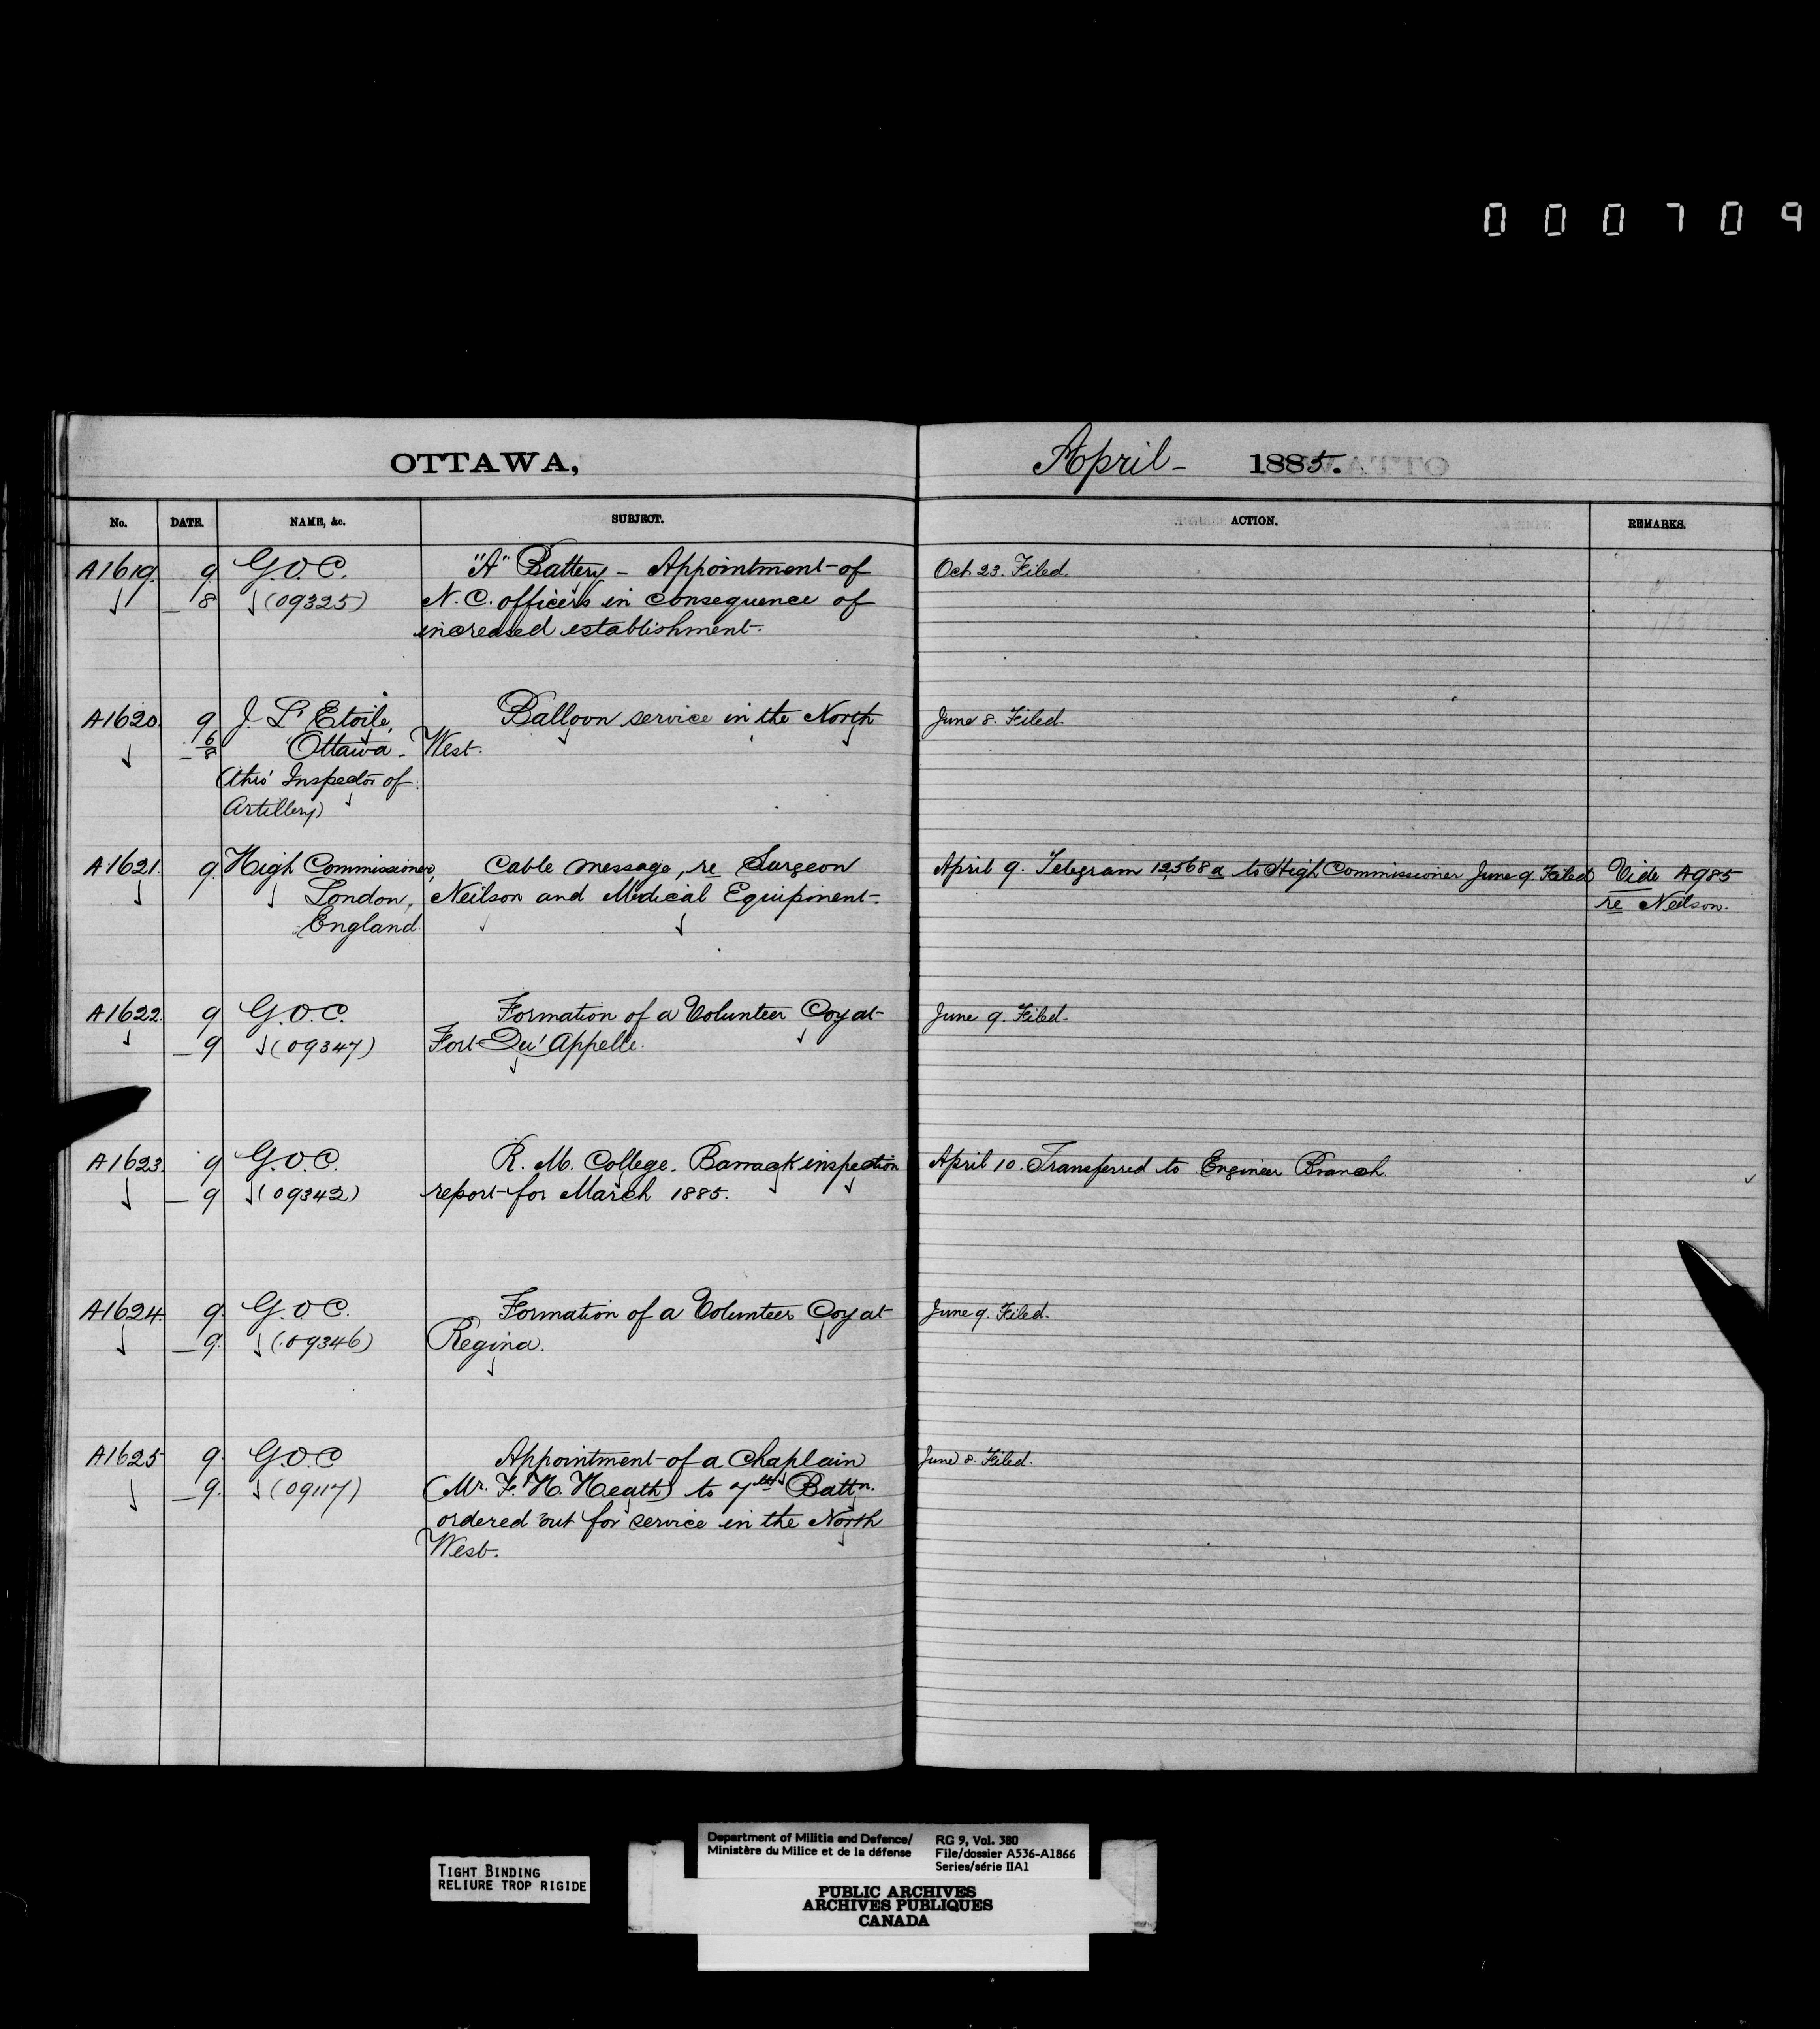 000709
OTTAWA, April - 1885.
No. DATE. NAME, &c. SUBJECT. ACTION. REMARKS.
A1619. 9 G.O.C. "A" Battery - Appointment of Oct 23. Filed.
8 (09325) N.C. officers in consequence of
increased establishment.
A1620 9 J. L'Etoile, Balloon service in the North June 8. Filed.
6 Ottawa - West.
8
(thro' Inspector of
Artillery)
A1621. 9. High Commissioner, Cable message, re Surgeon April 9. Telegram 12,568 a to High Commissioner June 9. Filed Vide A985
London, Neilson and Medical Equipment. re Neilson.
England
A1622. 9 G.O.C. Formation of a Volunteer Coy at June 9. Filed.
9 (09347) Fort Qu'Appelle.
A1623. 9 G.O.C. R. M. College. Barrack inspection April 10. Transferred to Engineer Branch.
9 (09342) report for March 1885.
A1624. 9. G.O.C. Formation of a Volunteer Coy at June 9. Filed.
9. (09346) Regina.
A1625 9. G.O.C Appointment of a Chaplain June 8. Filed.
9. (09117) (Mr. F. H. Heath) to 7th Battn.
ordered out for service in the North
West.
TIGHT BINDING
RELIURE TROP RIGIDE
Department of Militia and Defence/ RG 9, Vol. 380
Ministère du Milice et de la défense File/dossier A536-A1866
Series/série IIA1
PUBLIC ARCHIVES
ARCHIVES PUBLIQUES
CANADA